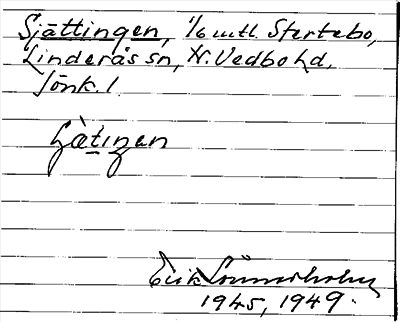 Sjättingen, 1/6 mtl. Stertebo,
Linderås sn, N. Vedbo hd.
Jönk. l.
Erik
1945, 1949.